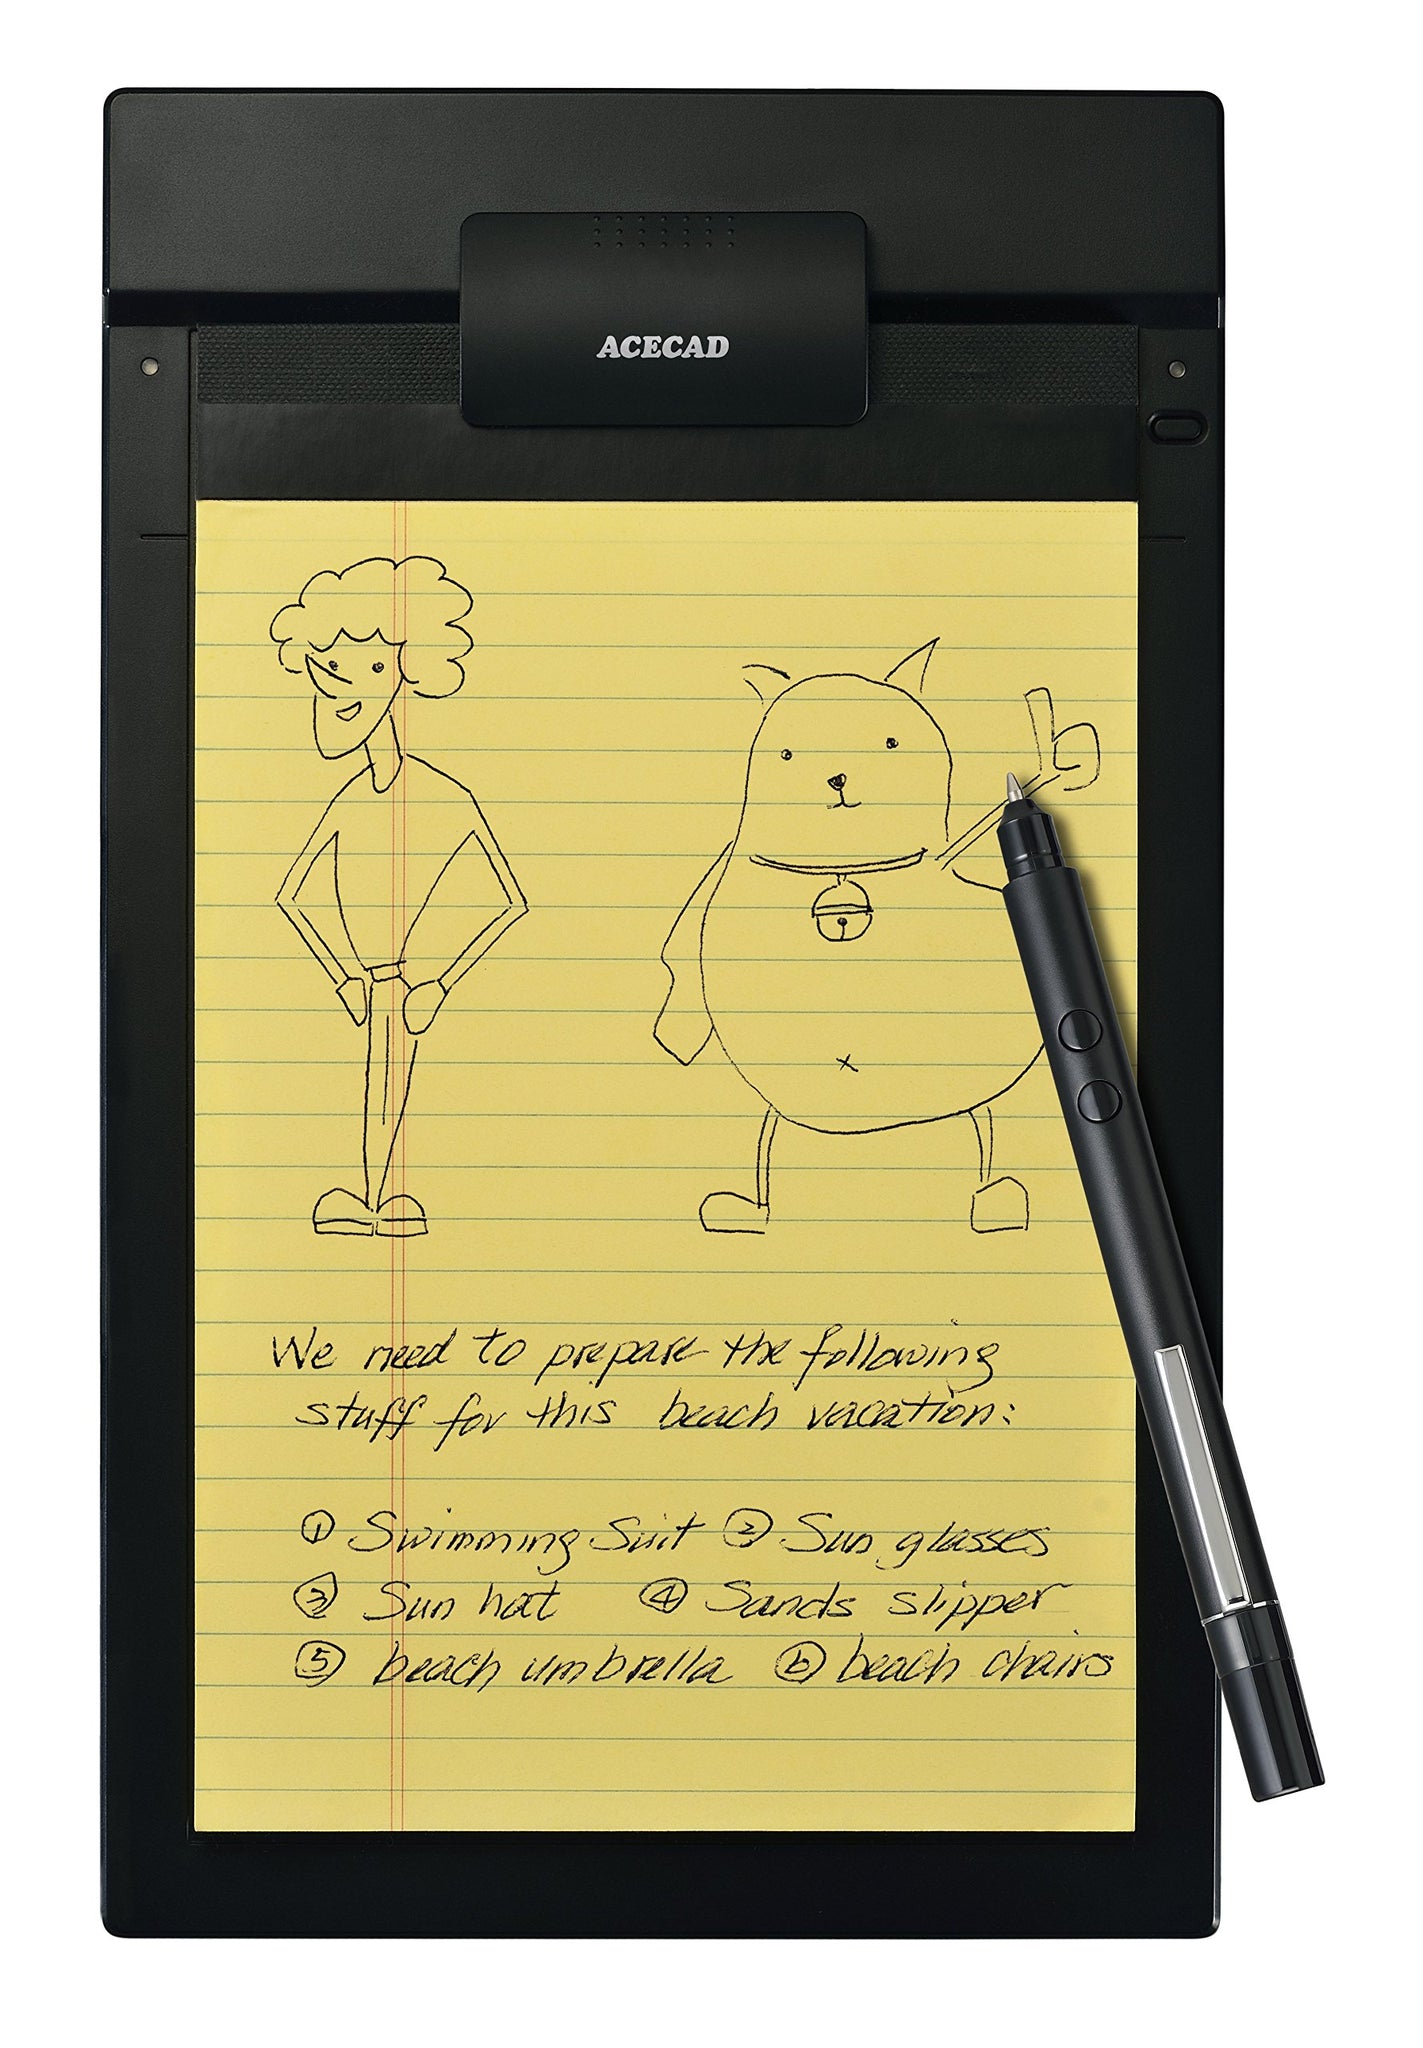 ACECAD
We need to prepare the following
stuff for this beach vacation:
① Swimming Suit ② Sun glasses
③ Sun hat ④ Sands slipper
⑤ beach umbrella ⑥ beach chairs